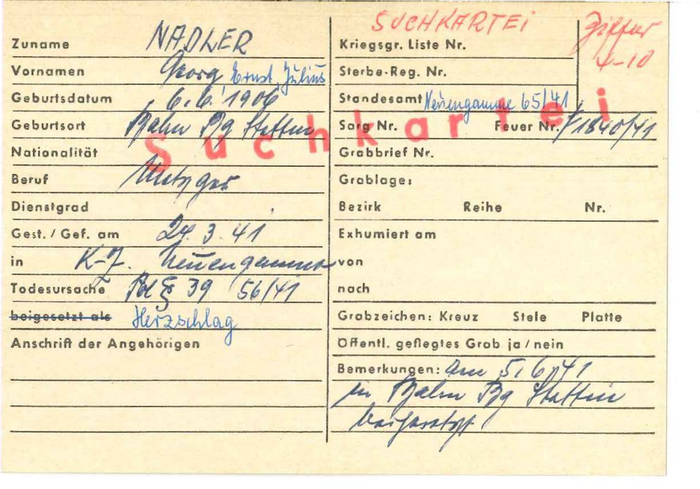 SUCHKARTEI
Ziffer
4-10
Suchkartei
Zuname NADLER
Vornamen Georg Ernst Julius
Geburtsdatum 6.6.1906
Geburtsort Bahn Bz Stettin
Nationalität
Beruf Metzger
Dienstgrad
Gest. / Gef. am 24.3.41
in K-Z. Neuengamme
Todesursache 39 56/41
beigesetzt als Herzschlag
Anschrift der Angehörigen
Kriegsgr. Liste Nr.
Sterbe-Reg. Nr.
Standesamt Neuengamme 65/41
Sarg Nr. Feuer Nr. 1840/41
Grabbrief Nr.
Grablage:
Bezirk Reihe Nr.
Exhumiert am
von
nach
Grabzeichen: Kreuz Stele Platte
Öffentl. gepflegtes Grab ja / nein
Bemerkungen: am 5.6.41
in Bahn Bz Stettin
beigesetzt